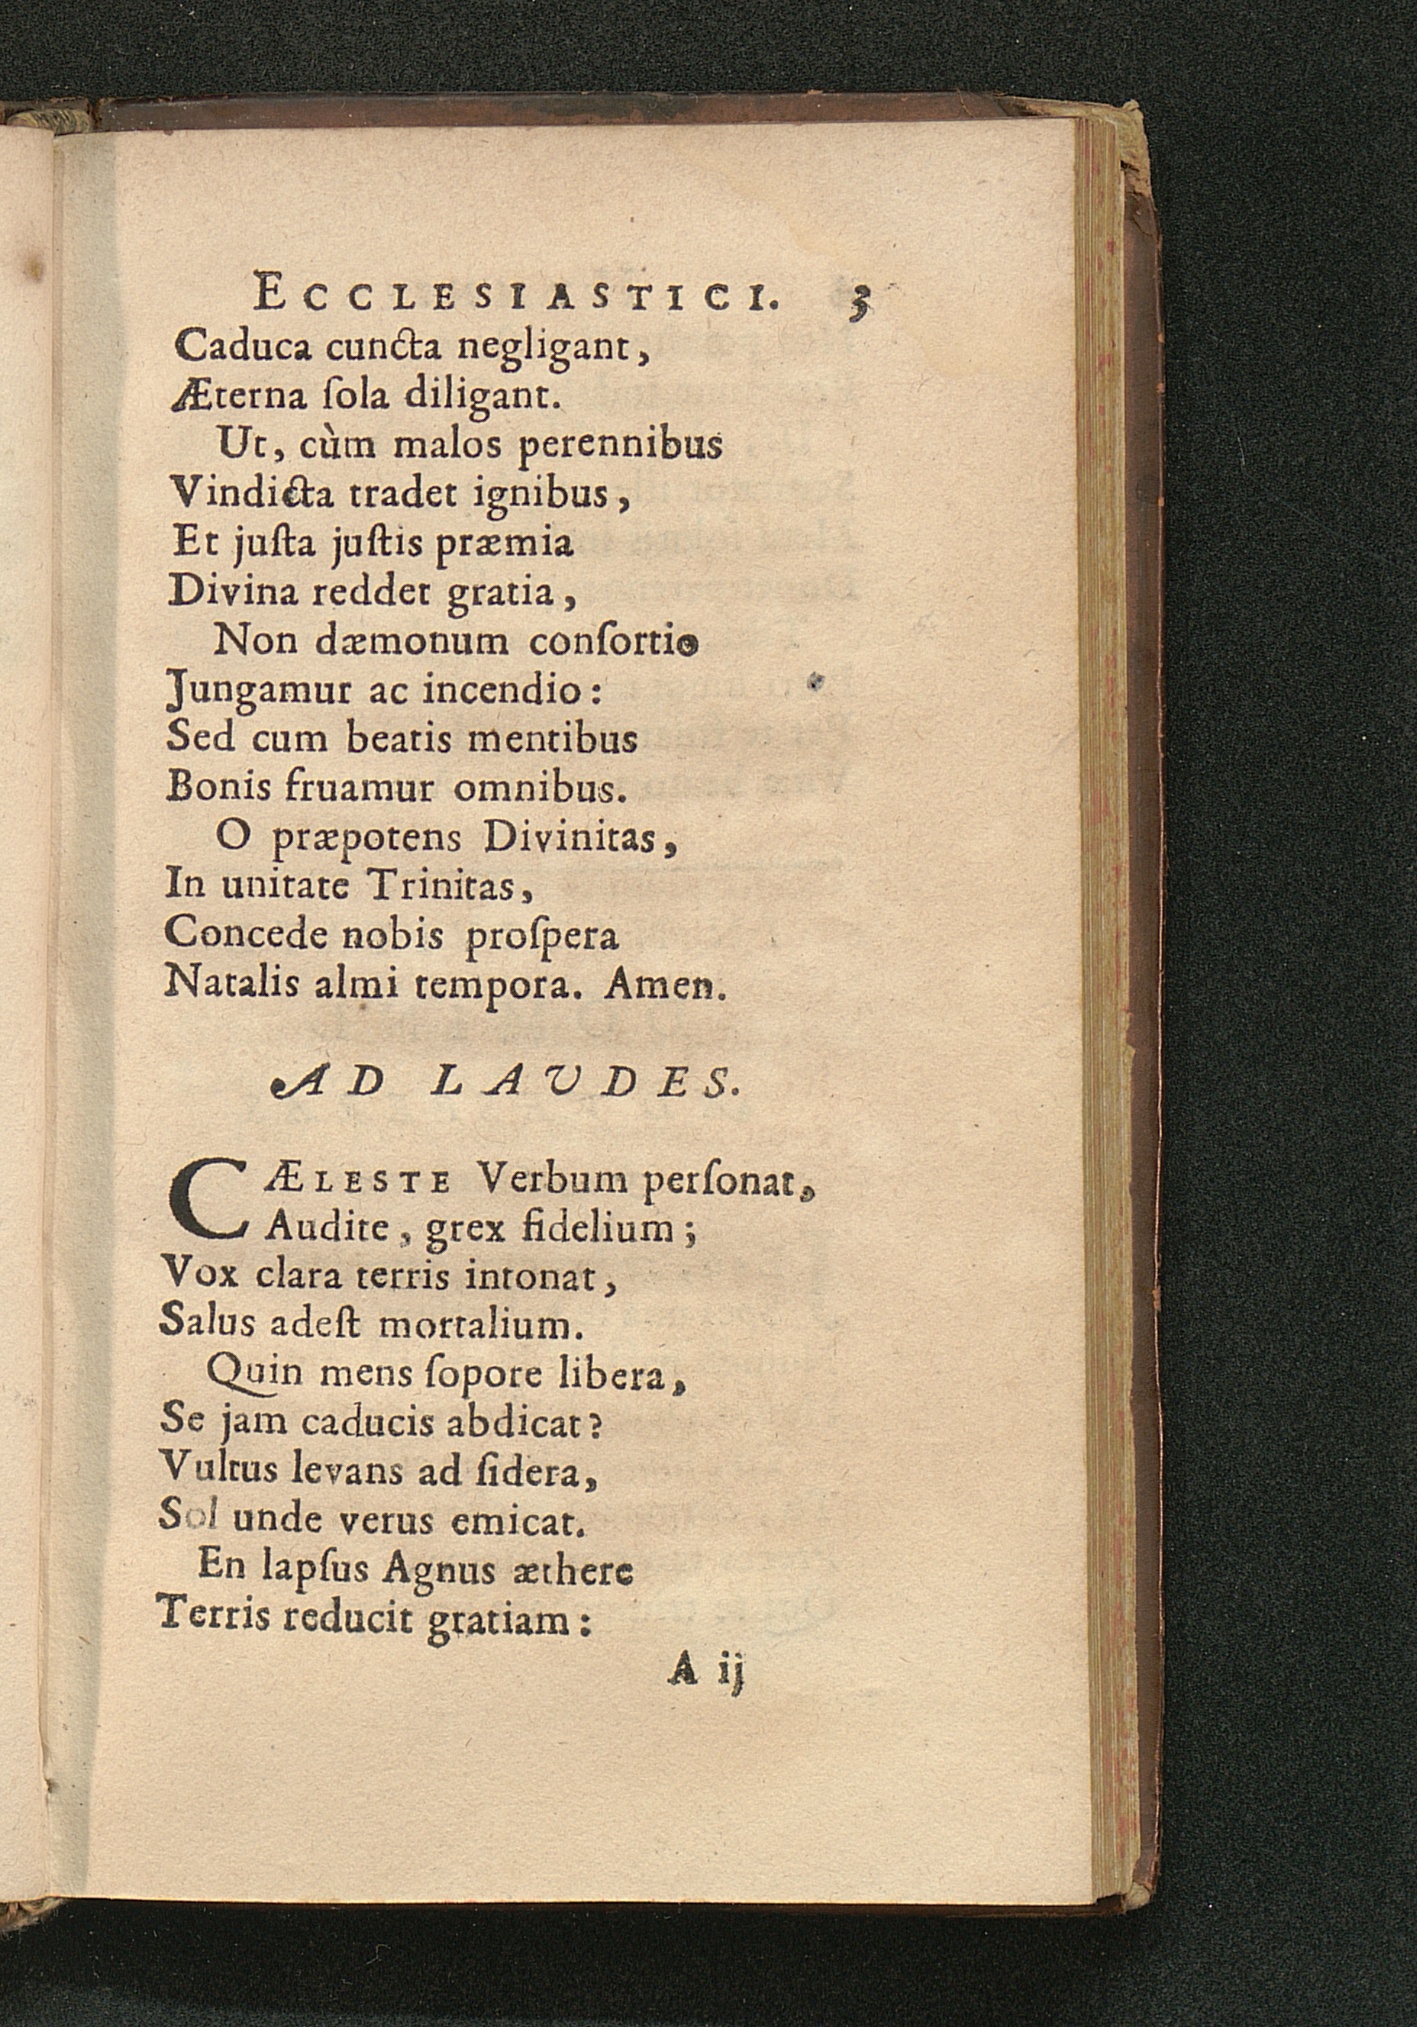 ECCLESIASTICI. 3
Caduca cuncta negligant,
Æterna ſola diligant.
Ut, cùm malos perennibus
Vindicta tradet ignibus,
Et juſta juſtis præmia
Divina reddet gratia,
Non dæmonum conſortio
Jungamur ac incendio:
Sed cum beatis mentibus
Bonis fruamur omnibus.
O præpotens Divinitas,
In unitate Trinitas,
Concede nobis proſpera
Natalis almi tempora. Amen.
AD LAUDES.
CÆLESTE Verbum perſonat,
Audite, grex fidelium;
Vox clara terris intonat,
Salus adeſt mortalium.
Quin mens ſopore libera,
Se jam caducis abdicat?
Vultus levans ad ſidera,
Sol unde verus emicat.
En lapſus Agnus æthere
Terris reducit gratiam:
A ij